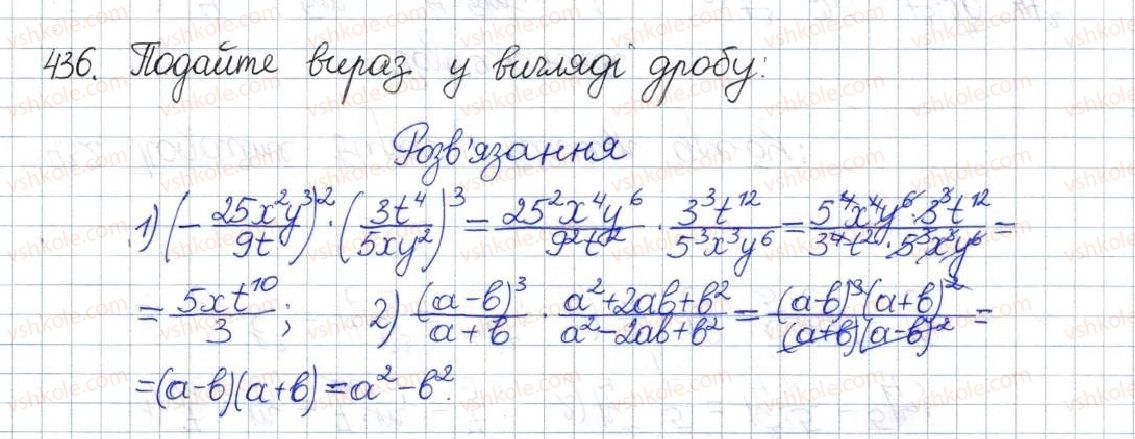 436. Подайте вираз у вигляді дробу:
Розв'язання
1) (-25x²y³/9t)² · (3t⁴/5xy²)³ = 25²x⁴y⁶/9²t² · 3³t¹²/5³x³y⁶ = 5⁴x⁴y⁶·3³t¹²/3⁴t²·5³x³y⁶ =
= 5xt¹⁰/3; 2) (a-b)³/a+b · a²+2ab+b²/a²-2ab+b² = (a-b)³(a+b)²/(a+b)(a-b)² =
=(a-b)(a+b)=a²-b².